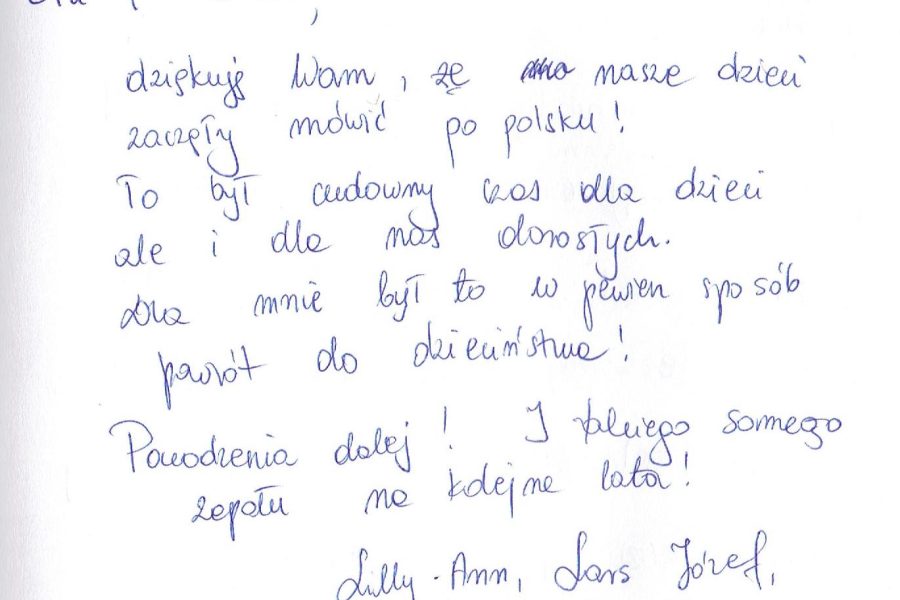 ,
dziękuję Wam, że nasze dzieci
zaczęły mówić po polsku!
To był cudowny czas dla dzieci
ale i dla nas dorosłych.
Dla mnie był to w pewien sposób
pawrót do dzieciństwa!
Powodzenia dalej! I takiego samego
zepołu na kolejne lata!
Lilly-Ann, Lars Józef,